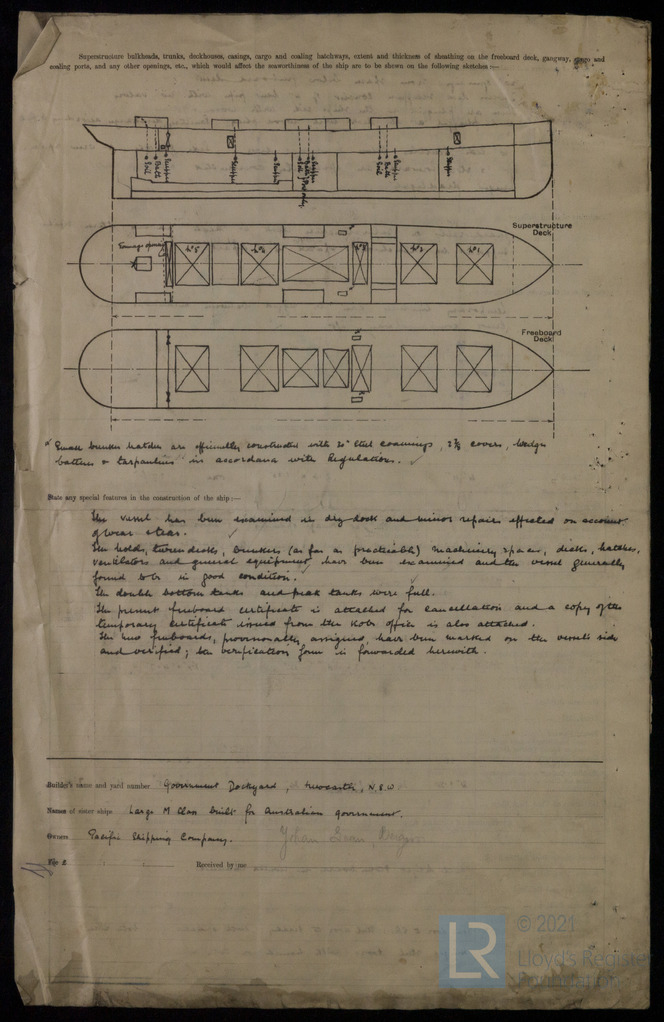 Superstructure bulkheads, trunks, deckhouses, casings, cargo and coaling hatchways, extent and thickness of sheathing on the freeboard deck, gangway, cargo and
coaling ports, and any other openings, etc., which would affect the seaworthiness of the ship are to be shown on the following sketches :—
Soil
Bath
Scupper
Scupper
Scupper
Soil
Scupper
Soil
Bath
Scupper
Scupper
Superstructure
Deck
Tonnage opening
No 5
No 4
No 3
No 2
No 1
Freeboard
Deck
"Small bunker hatches are efficiently constructed with 30" steel coamings, 2½ covers, wedges
battens & tarpaulins" in accordance with Regulations. ✓
State any special features in the construction of the ship :—
The vessel has been examined in dry dock and minor repairs effected on account
of wear & tear. ✓
The holds, tween decks, bunkers (as far as practicable) machinery space, decks, hatches,
ventilators and general equipment have been examined and the vessel generally
found to be in good condition. ✓
The double bottom tanks and peak tanks were full. ✓
The present freeboard certificate is attached for cancellation and a copy of the
temporary certificate issued from the Kobe office is also attached.
The new freeboards, provisionally assigned, have been marked on the vessel's side
and verified; the verification form is forwarded herewith.
Builder's name and yard number Government Dockyard, Newcastle, N.S.W.
Names of sister ships Large M Class built for Australian government.
Owners Pacific Shipping Company.
Fee £
Received by me
LR
© 2021
Lloyd's Register
Foundation